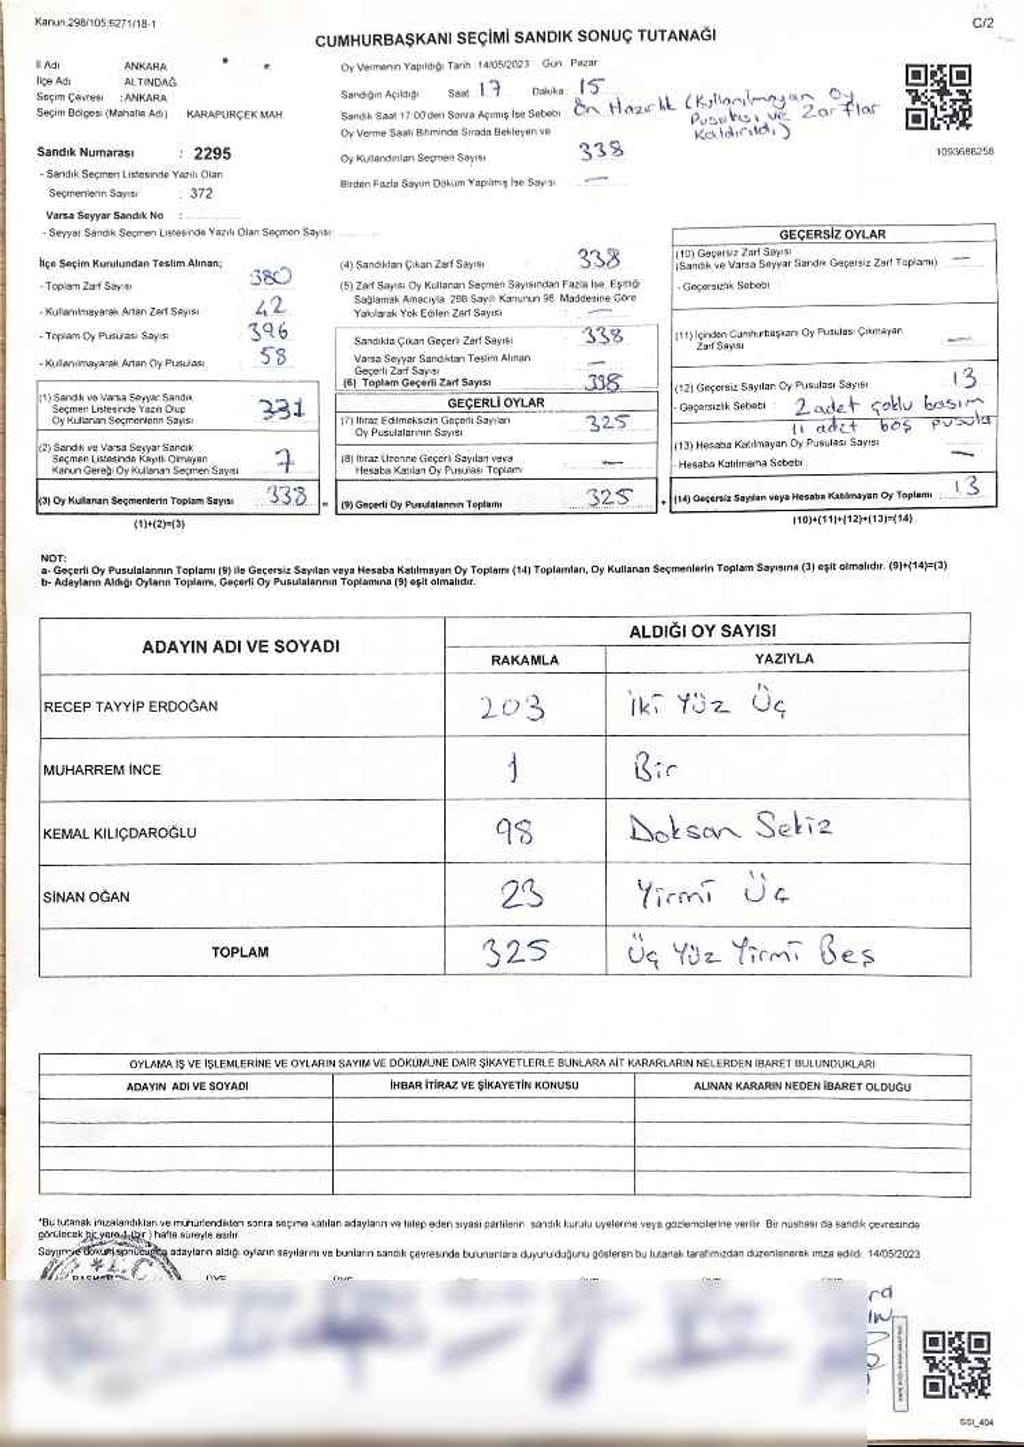 Kanun.298/105,6271/18-1
C/2
CUMHURBAŞKANI SEÇİMİ SANDIK SONUÇ TUTANAĞI
İl Adı ANKARA
İlçe Adı ALTINDAĞ
Seçim Çevresi :ANKARA
Seçim Bölgesi (Mahalle Adı) KARAPÜRÇEK MAH
Sandık Numarası : 2295
- Sandık Seçmen Listesinde Yazılı Olan
Seçmenlerin Sayısı : 372
Varsa Seyyar Sandık No :
- Seyyar Sandık Seçmen Listesinde Yazılı Olan Seçmen Sayısı
Oy Vermenin Yapıldığı Tarih :14/05/2023 Gün Pazar
Sandığın Açıldığı Saat 17 Dakika : 15
Sandık Saat 17:00'den Sonra Açılmış İse Sebebi Ön Hazırlık (Kullanılmayan Oy
Pusulası ve Zarflar
Kaldırıldı)
Oy Verme Saati Bitiminde Sırada Bekleyen ve
Oy Kullandırılan Seçmen Sayısı 338
Birden Fazla Sayım Döküm Yapılmış İse Sayısı —
1093686258
İlçe Seçim Kurulundan Teslim Alınan;
- Toplam Zarf Sayısı 380
- Kullanılmayarak Artan Zarf Sayısı 42
- Toplam Oy Pusulası Sayısı 396
- Kullanılmayarak Artan Oy Pusulası 58
(1) Sandık ve Varsa Seyyar Sandık
Seçmen Listesinde Yazılı Olup
Oy Kullanan Seçmenlerin Sayısı 331
(2) Sandık ve Varsa Seyyar Sandık
Seçmen Listesinde Kayıtlı Olmayan
Kanun Gereği Oy Kullanan Seçmen Sayısı 7
(3) Oy Kullanan Seçmenlerin Toplam Sayısı 338
(1)+(2)=(3)
(4) Sandıktan Çıkan Zarf Sayısı 338
(5) Zarf Sayısı Oy Kullanan Seçmen Sayısından Fazla İse, Eşitliği
Sağlamak Amacıyla, 298 Sayılı Kanunun 98. Maddesine Göre
Yakılarak Yok Edilen Zarf Sayısı —
Sandıkta Çıkan Geçerli Zarf Sayısı 338
Varsa Seyyar Sandıktan Teslim Alınan
Geçerli Zarf Sayısı —
(6) Toplam Geçerli Zarf Sayısı 338
GEÇERLİ OYLAR
(7) İtiraz Edilmeksizin Geçerli Sayılan
Oy Pusulalarının Sayısı 325
(8) İtiraz Üzerine Geçerli Sayılan veya
Hesaba Katılan Oy Pusulası Toplamı —
= (9) Geçerli Oy Pusulalarının Toplamı 325 +
GEÇERSİZ OYLAR
(10) Geçersiz Zarf Sayısı —
(Sandık ve Varsa Seyyar Sandık Geçersiz Zarf Toplamı)
- Geçersizlik Sebebi
(11) İçinden Cumhurbaşkanı Oy Pusulası Çıkmayan
Zarf Sayısı —
(12) Geçersiz Sayılan Oy Pusulası Sayısı 13
- Geçersizlik Sebebi : 2 adet çoklu basım
11 adet boş pusula
(13) Hesaba Katılmayan Oy Pusulası Sayısı —
- Hesaba Katılmama Sebebi
(14) Geçersiz Sayılan veya Hesaba Katılmayan Oy Toplamı 13
(10)+(11)+(12)+(13)=(14)
NOT:
a- Geçerli Oy Pusulalarının Toplamı (9) ile Geçersiz Sayılan veya Hesaba Katılmayan Oy Toplamı (14) Toplamları, Oy Kullanan Seçmenlerin Toplam Sayısına (3) eşit olmalıdır. (9)+(14)=(3)
b- Adayların Aldığı Oyların Toplamı, Geçerli Oy Pusulalarının Toplamına (9) eşit olmalıdır.
ADAYIN ADI VE SOYADI
ALDIĞI OY SAYISI
RAKAMLA YAZIYLA
RECEP TAYYİP ERDOĞAN 203 İki Yüz Üç
MUHARREM İNCE 1 Bir
KEMAL KILIÇDAROĞLU 98 Doksan Sekiz
SİNAN OĞAN 23 Yirmi Üç
TOPLAM 325 Üç Yüz Yirmi Beş
OYLAMA İŞ VE İŞLEMLERİNE VE OYLARIN SAYIM VE DÖKÜMÜNE DAİR ŞİKAYETLERLE BUNLARA AİT KARARLARIN NELERDEN İBARET BULUNDUKLARI
ADAYIN ADI VE SOYADI İHBAR İTİRAZ VE ŞİKAYETİN KONUSU ALINAN KARARIN NEDEN İBARET OLDUĞU
*Bu tutanak imzalandıktan ve mühürlendikten sonra seçime katılan adayların ve talep eden siyasi partilerin sandık kurulu üyelerine veya gözlemcilerine verilir. Bir nüshası da sandık çevresinde
görülecek bir yere 1 (bir) hafta süreyle asılır.
Sayım ve döküm sonucunda adayların aldığı oyların sayılarını ve bunların sandık çevresinde bulunanlara duyurulduğunu gösteren bu tutanak tarafımızdan düzenlenerek imza edildi. 14/05/2023
SSI_404